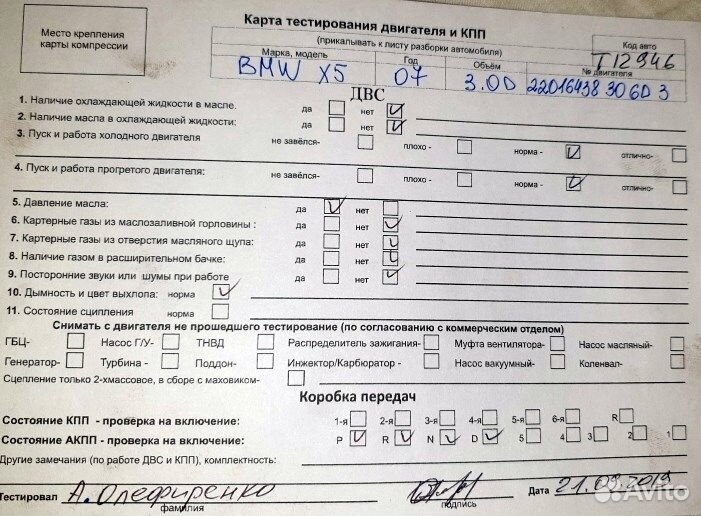 Место крепления
карты компрессии
Карта тестирования двигателя и КПП
(прикалывать к листу разборки автомобиля)
Код авто
T12946
Марка, модель Год Объём № двигателя
BMW X5 07 3.0D 22016438 306D3
ДВС
1. Наличие охлаждающей жидкости в масле. да нет
2. Наличие масла в охлаждающей жидкости: да нет
3. Пуск и работа холодного двигателя не завёлся- плохо - норма - отлично-
4. Пуск и работа прогретого двигателя: не завёлся- плохо - норма - отлично-
5. Давление масла: да нет
6. Картерные газы из маслозаливной горловины : да нет
7. Картерные газы из отверстия масляного щупа: да нет
8. Наличие газом в расширительном бачке: да нет
9. Посторонние звуки или шумы при работе да нет
10. Дымность и цвет выхлопа: норма
11. Состояние сцепления норма
Снимать с двигателя не прошедшего тестирование (по согласованию с коммерческим отделом)
ГБЦ- Насос Г/У- ТНВД Распределитель зажигания- Муфта вентилятора- Насос масляный-
Генератор- Турбина - Поддон- Инжектор/Карбюратор - Насос вакуумный- Коленвал-
Сцепление только 2-хмассовое, в сборе с маховиком-
Коробка передач
Состояние КПП - проверка на включение: 1-я 2-я 3-я 4-я 5-я 6-я R
Состояние АКПП - проверка на включение: P R N D 5 4 3 2 1
Другие замечания (по работе ДВС и КПП), комплектность:
Тестировал А. Олефиренко Дата 21.09.2019
фамилия подпись
Avito